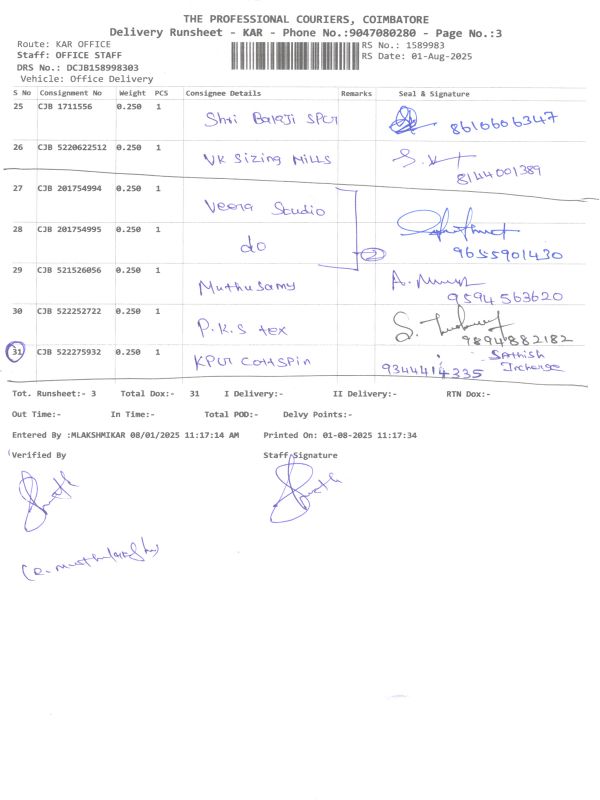 THE PROFESSIONAL COURIERS, COIMBATORE
Delivery Runsheet - KAR - Phone No.:9047080280 - Page No.:3
Route: KAR OFFICE
RS No.: 1589983
Staff: OFFICE STAFF
RS Date: 01-Aug-2025
DRS No.: DCJB158998303
Vehicle: Office Delivery
S No Consignment No Weight PCS Consignee Details Remarks Seal & Signature
25 CJB 1711556 0.250 1 Shri Balaji 8610606347
26 CJB 5220622512 0.250 1 VK Sizing Mills 8144001389
27 CJB 201754994 0.250 1 Veera Studio
28 CJB 201754995 0.250 1 do 2 9655901430
29 CJB 521526056 0.250 1 Muthusamy 9594563620
30 CJB 522252722 0.250 1 P.K.S tex 9894882182
31 CJB 522275932 0.250 1 KPR Cottspin 9344414335 Sathish Incharge
Tot. Runsheet:- 3 Total Dox:- 31 I Delivery:- II Delivery:- RTN Dox:-
Out Time:- In Time:- Total POD:- Delvy Points:-
Entered By :MLAKSHMIKAR 08/01/2025 11:17:14 AM Printed On: 01-08-2025 11:17:34
Verified By Staff Signature